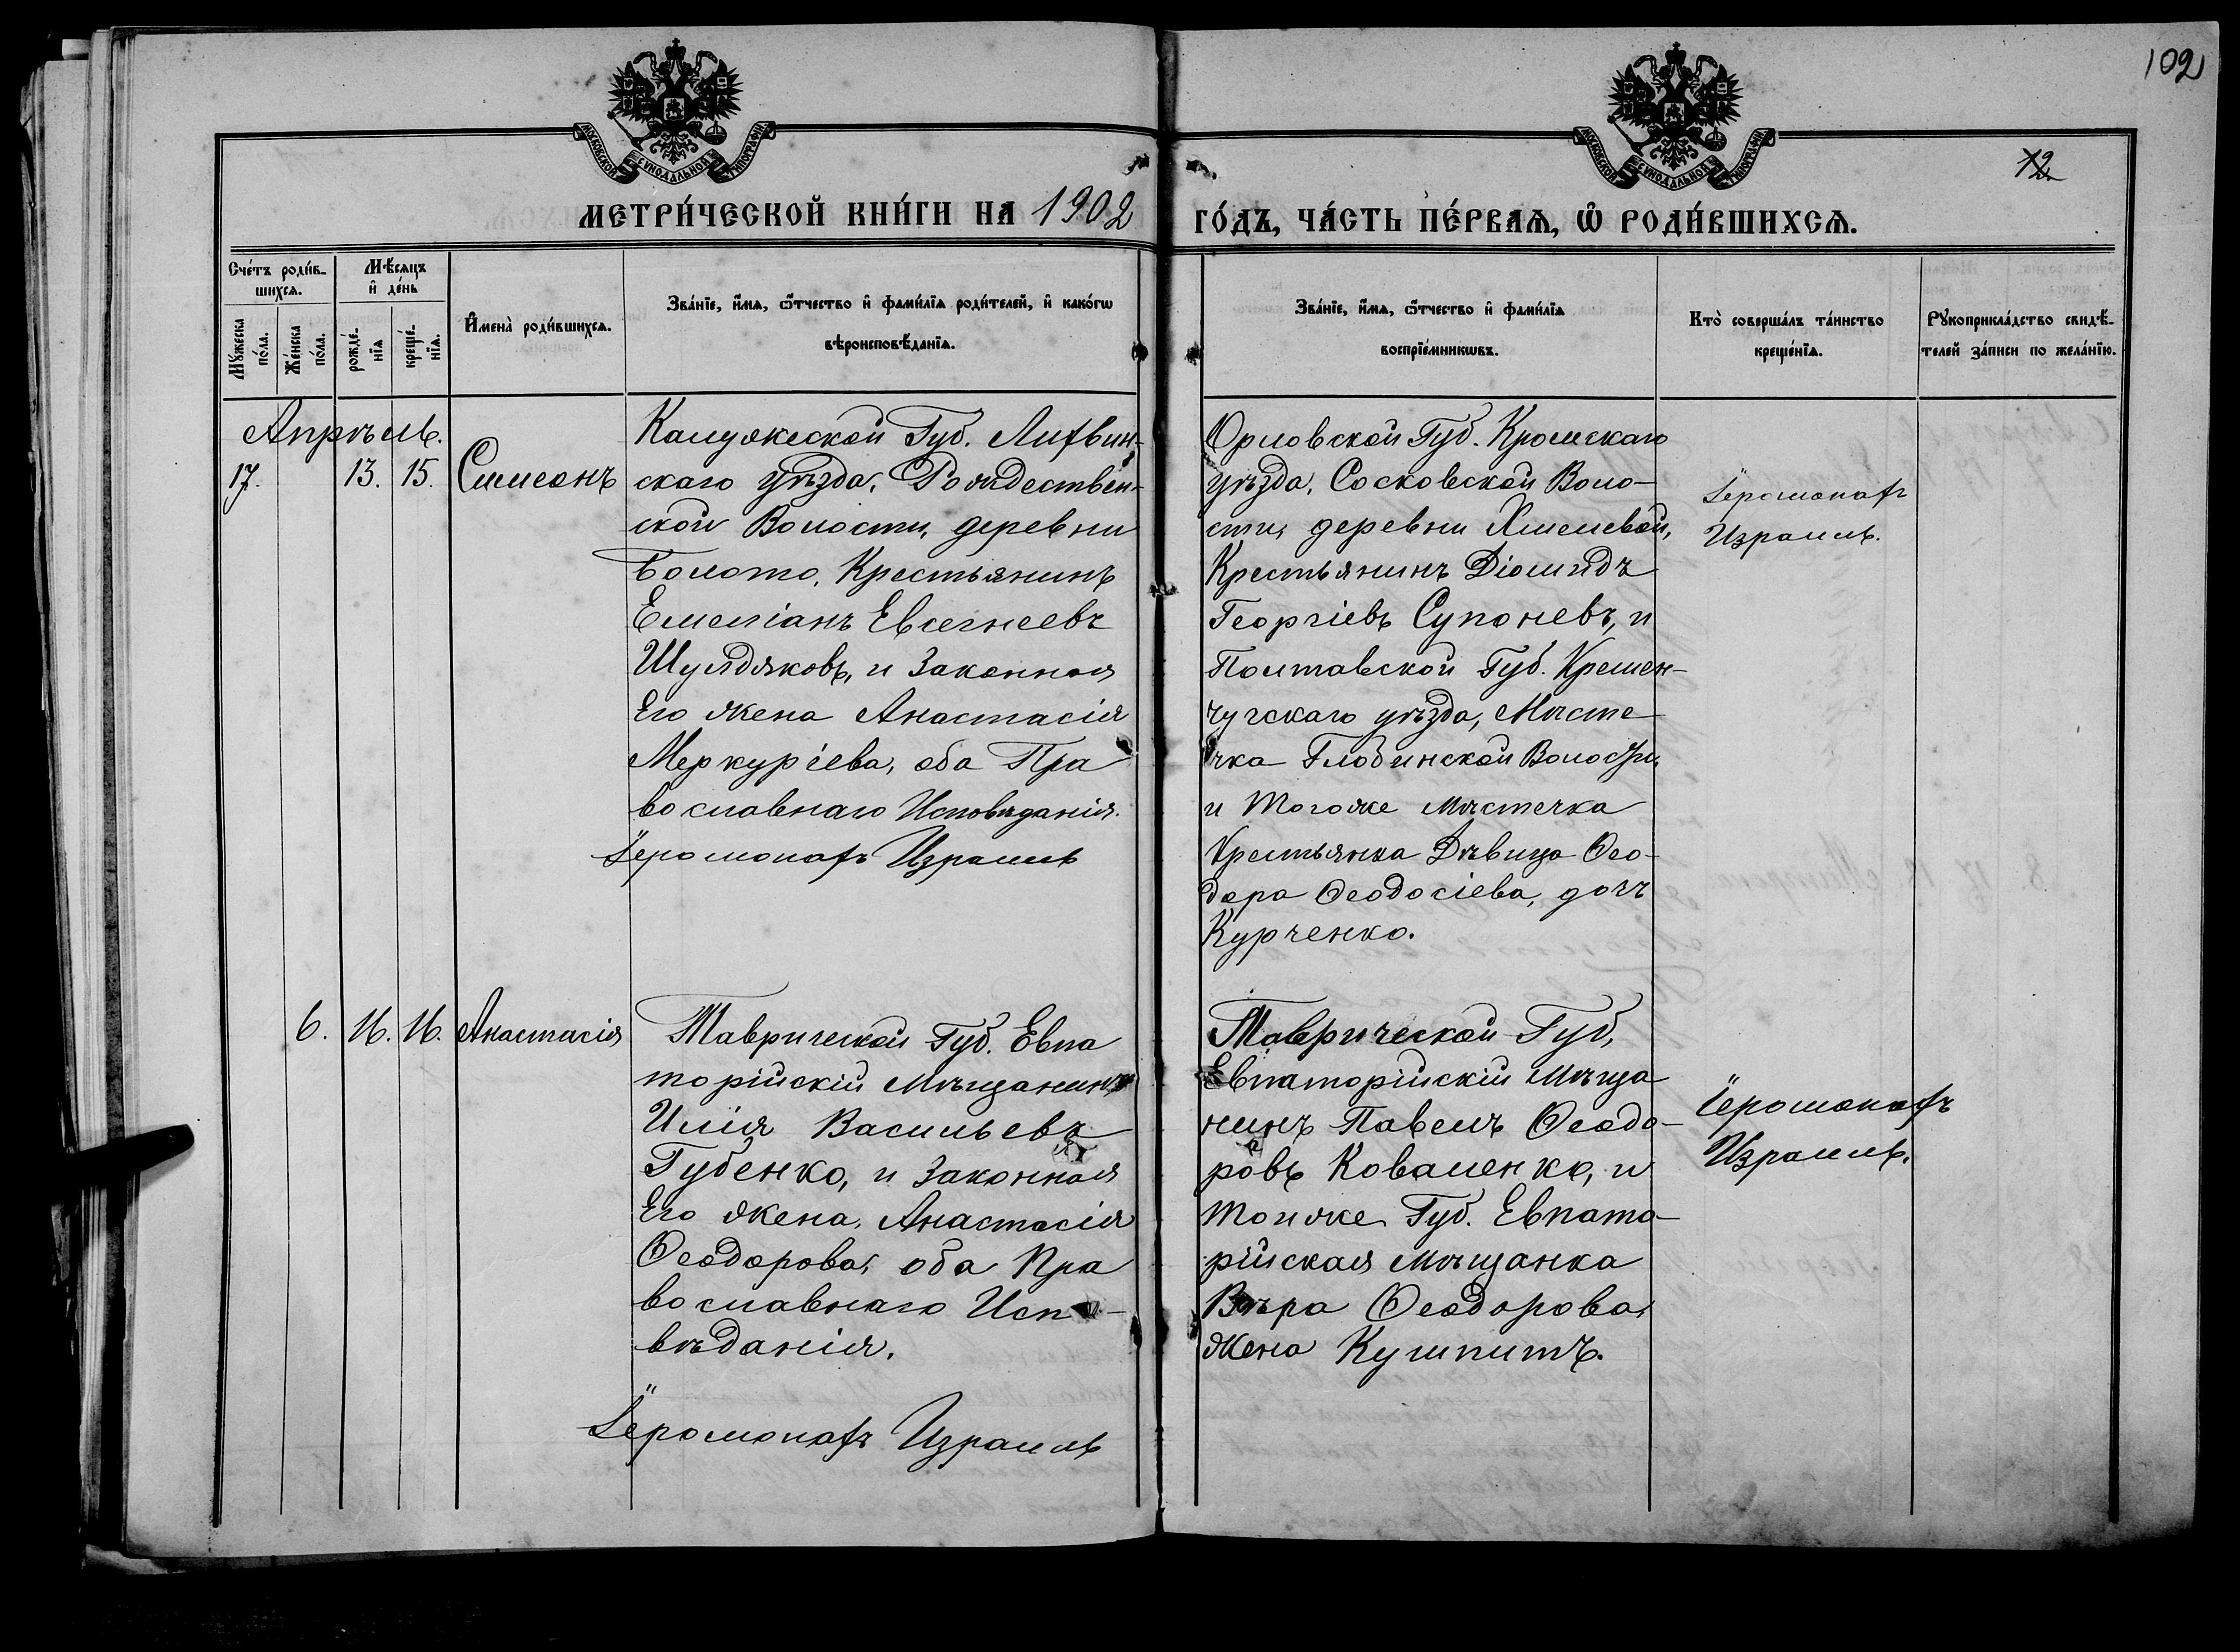 102
12
МОСКОВСКОЙ СУНОДАЛЬНОЙ ТИПОГРАФІИ
МОСКОВСКОЙ СУНОДАЛЬНОЙ ТИПОГРАФІИ
МЕТРИ́ЧЕСКОЙ КНИ́ГИ НА 1902
ГО́ДЪ, ЧА́СТЬ ПЕ́РВАѦ, Ѡ҆ РОДИ́ВШИХСѦ.
Сче́тъ роди́в-
шихсѧ.
Мꙋжеска по́ла.
Же́нска по́ла.
Мѣ́сѧцъ
и҆ де́нь
рожде́-
нїѧ
креще́-
нїѧ.
И҆мена̀ роди́вшихсѧ.
Зва́нїе, и҆́мѧ, ѻ҆́тчество и҆ фами́лїѧ роди́телей, и҆ како́гѡ
вѣроисповѣ́данїѧ.
Зва́нїе, и҆́мѧ, ѻ҆́тчество и҆ фами́лїѧ
воспрїе́мникѡвъ.
Кто̀ соверша́лъ та́инство
креще́нїѧ.
Рꙋкоприкла́дство свидѣ́-
телей за́писи по жела́нїю.
Апрѣль.
17. 13. 15. Симеонъ
Калужской Губ. Лихвин-
скаго уѣзда, Рождествен-
ской Волости, деревни
Болото, Крестьянинъ
Емеліанъ Евсегнеевъ
Шулдяковъ, и Законная
Его жена Анастасія
Меркуріева, оба Пра
вославнаго Исповѣданія.
Іеромонахъ Израиль
Орловской Губ. Кромскаго
уѣзда, Сосковской Воло-
сти, деревни Хмелевой,
Крестьянинъ Діомидъ
Георгіевъ Супоневъ, и
Полтавской Губ. Кремен-
чугскаго уѣзда, Мѣсте-
чка Глобинской Волости,
и Тогоже мѣстечка
Крестьянка Дѣвица Ѳео-
дора Ѳеодосіева, дочь
Курченко.
Іеромонахъ
Израиль.
6. 16. 16. Анастасія
Таврической Губ. Евпа
торійскій Мѣщанинъ
Илія Васильевъ
Губенко, и Законная
Его жена, Анастасія
Ѳеодорова, оба Пра
вославнаго Испо-
вѣданія.
Іеромонахъ Израиль
Таврической Губ,
Евпаторійскій Мѣща
нинъ Павелъ Ѳеодо-
ровъ Коваленко, и
Тойже Губ. Евпато-
рійская мѣщанка
Вѣра Ѳеодорова,
жена Кушпитъ.
Іеромонахъ
Израиль.